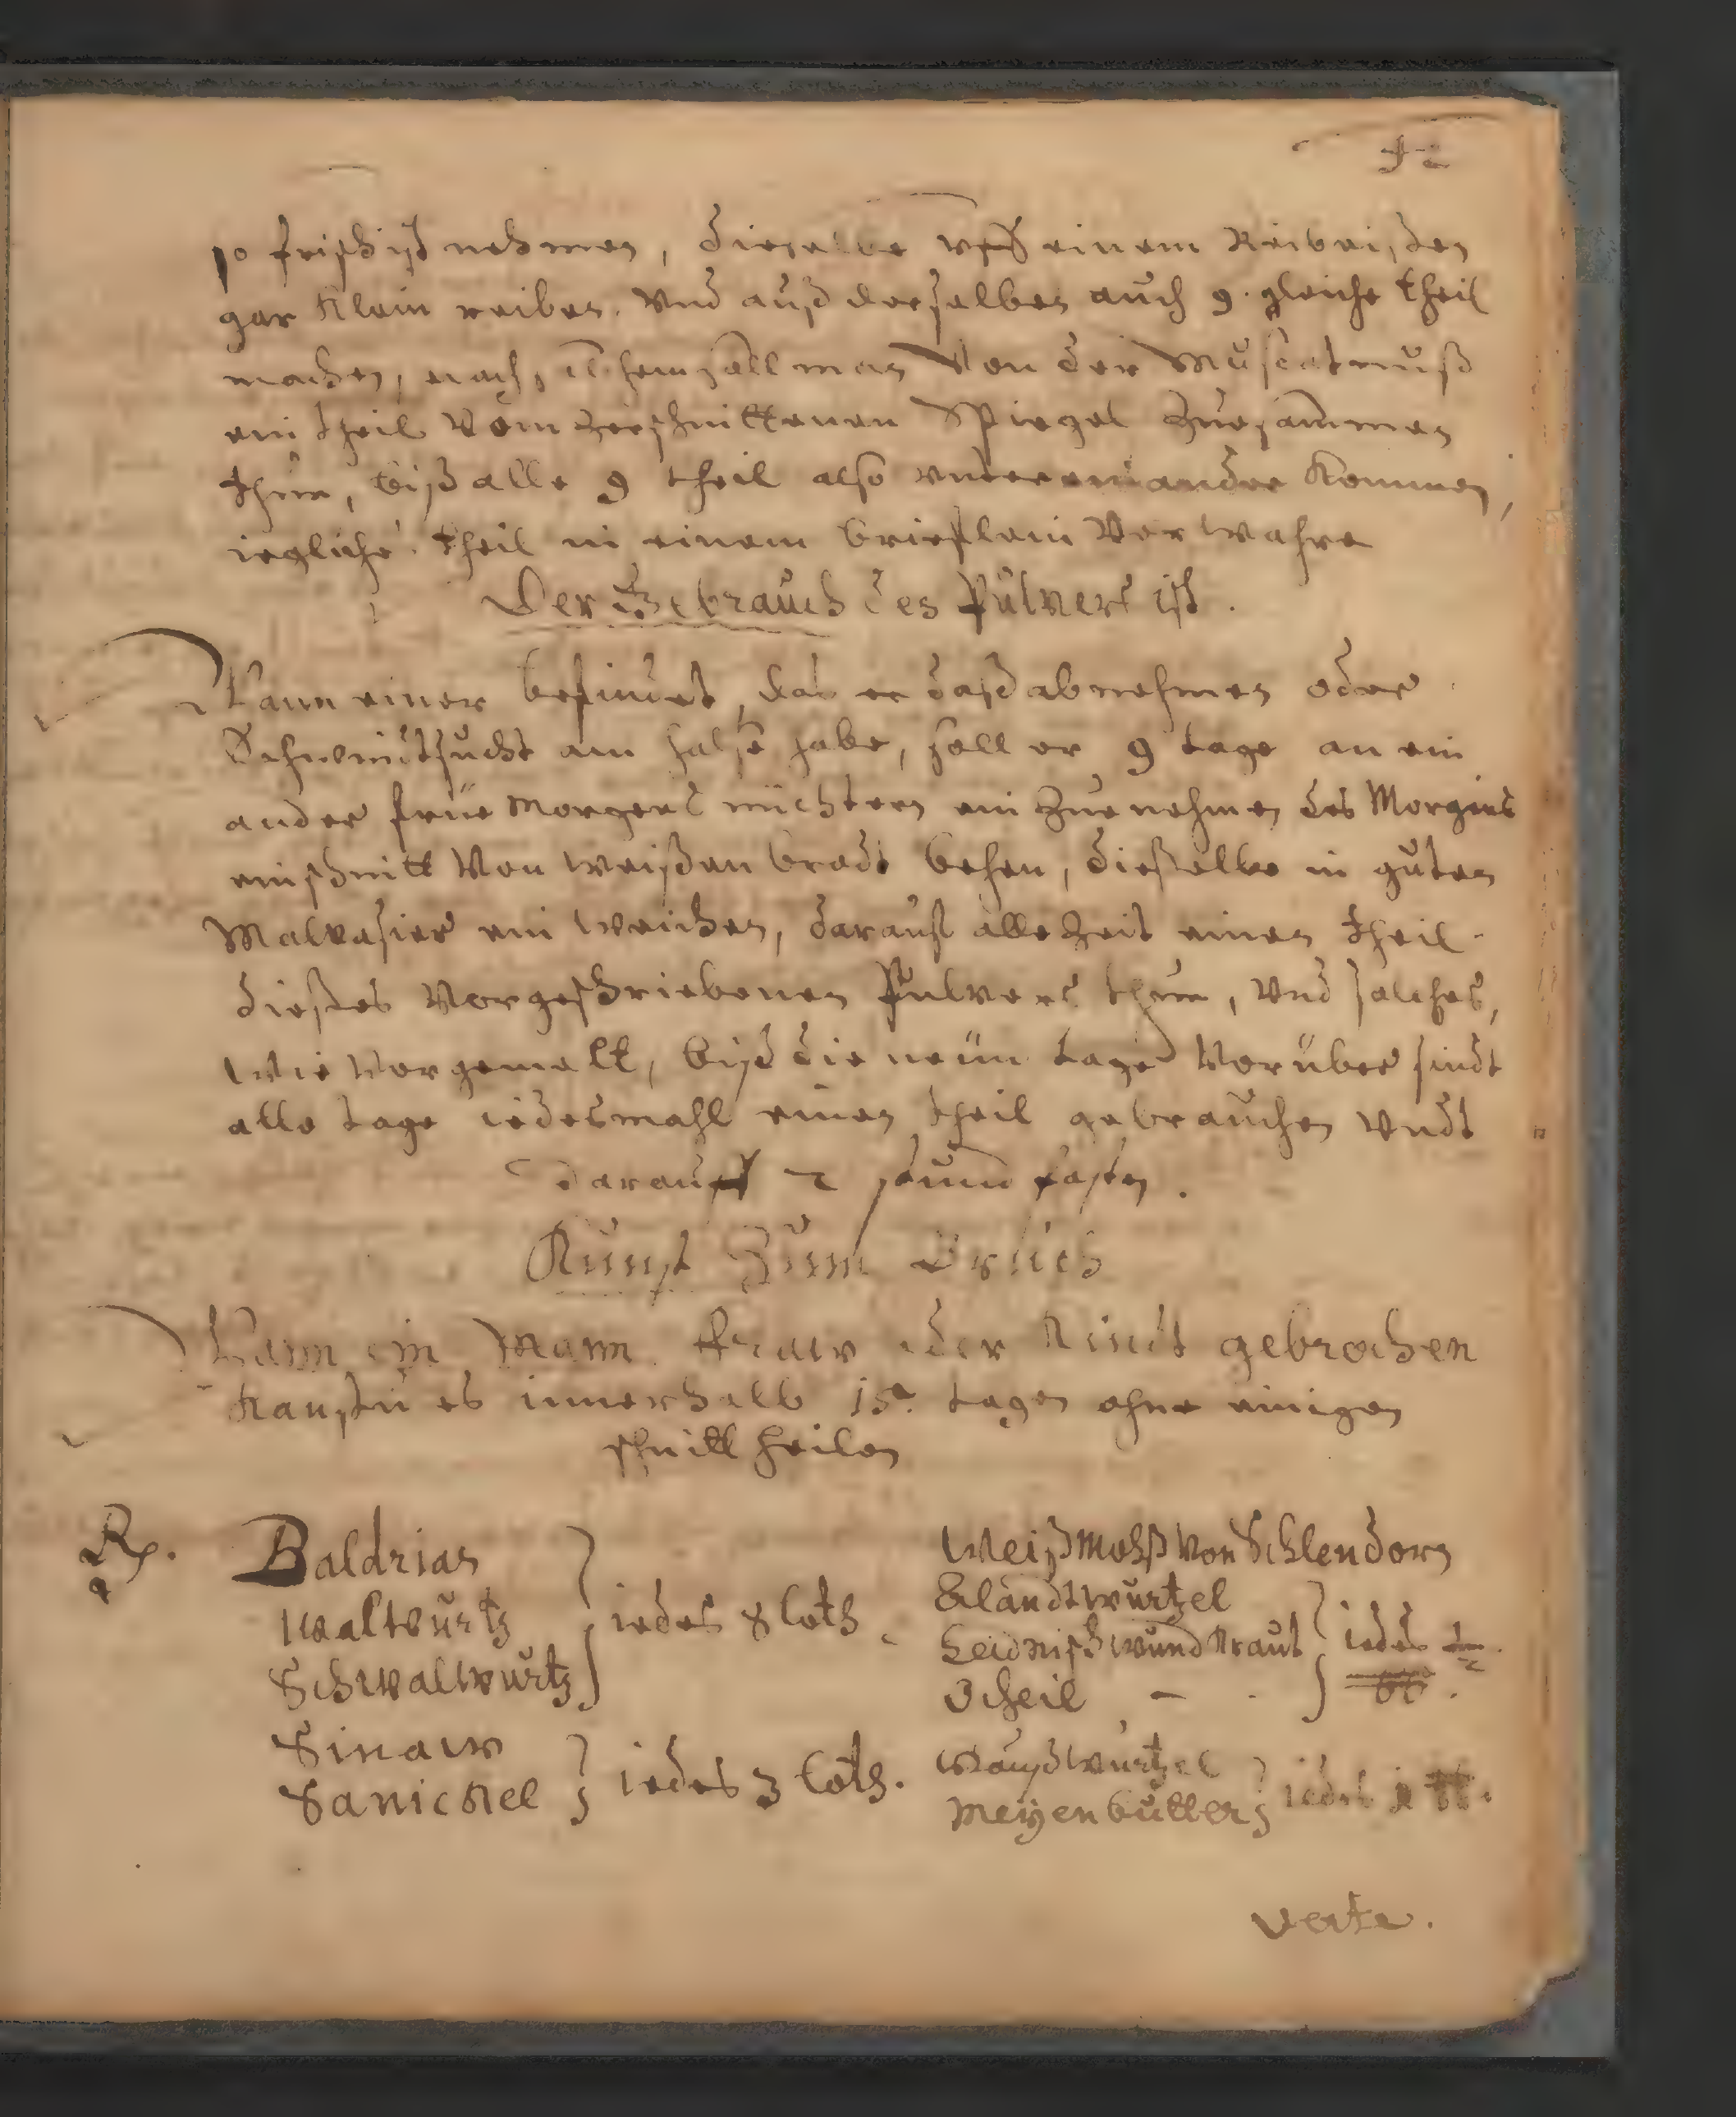 so frisch ist nehmen, dieselbe vff einem Reibeisten
gar klein reiben. Vnd auß derselben auch 9. gleiche theil
machen, nach soll man Von der Muscatnuß
ein theil Vom zerschnittenen Spiegel zuesammen
thun, biß alle 9 theil also vntereinander kommen,
iegliche theil in einem brieflein Verwahre
Der Gebrauch des Pulvers ist.
Wann einer befindet, das er daß abnehmen oder
Schwindtsucht am halse habe, soll er 9 tage an ein
ander früe Morgens nüchtern ein zue nehmen des Morgens
ein schnitt Von weißen brodt behen, dieselbe in guten
Malvasier ein weichen, darauff alle Zeit einen theil
dießes Vorgeschriebenen Pulvers thun, Vnd solches,
Wie Vorgemelt, biß die neün tage Vorüber sindt
alle tage iedesmahl einen theil gebrauchen Vndt
darauff 2 stund fasten.
Kunst Zum Bruch
Wann ein Mann Fraw oder Kindt gebrochen
kanstu es innerhalb 15. tagen ohne einigen
schnitt heilen
Rp. Baldrian
Waltwurtz
Schwalwurtz
iedes 8 loth.
Sinaw
Sanickel
iedes 3 loth.
Weiß Mohß Von Schlendorn
Alandtwurtzel
Heidnisch wund Kraut
iedes ½ lb.
Wurtzel
Meyenbutter
iedes 1 lb.
verte.